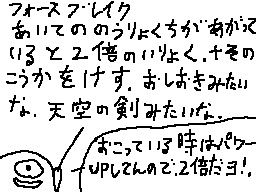 フォースブレイク
あいてののうりょくちがあがって
いると2倍のいりょく.+その
こうかをけす.おしおきみたい
な.天空の剣みたいな.
おこっている時はパワー
UPしてんので.2倍だヨ!.